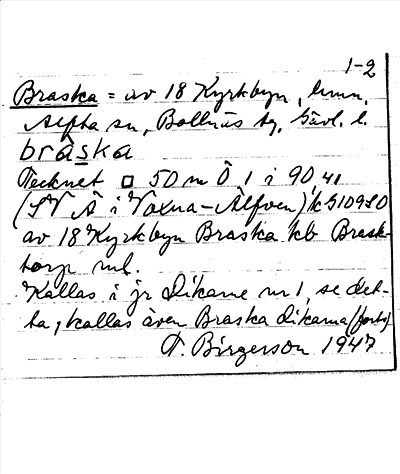 1-2
Braska = av 18 Kyrkbyn, hmn,
Alfta sn, Bollnäs tg, Gävl. l.
bråska
Tecknet □ 50 m Ö 1 i 90, 41
(SV Å i Voxna-Älfven) k 510920
av 18 Kyrkbyn Braska kb Brask-
torp ml.
Kallas i jr Dikarne nr 1, se det-
ta, kallas även Braska dikarna (forts)
F. Birgerson 1947